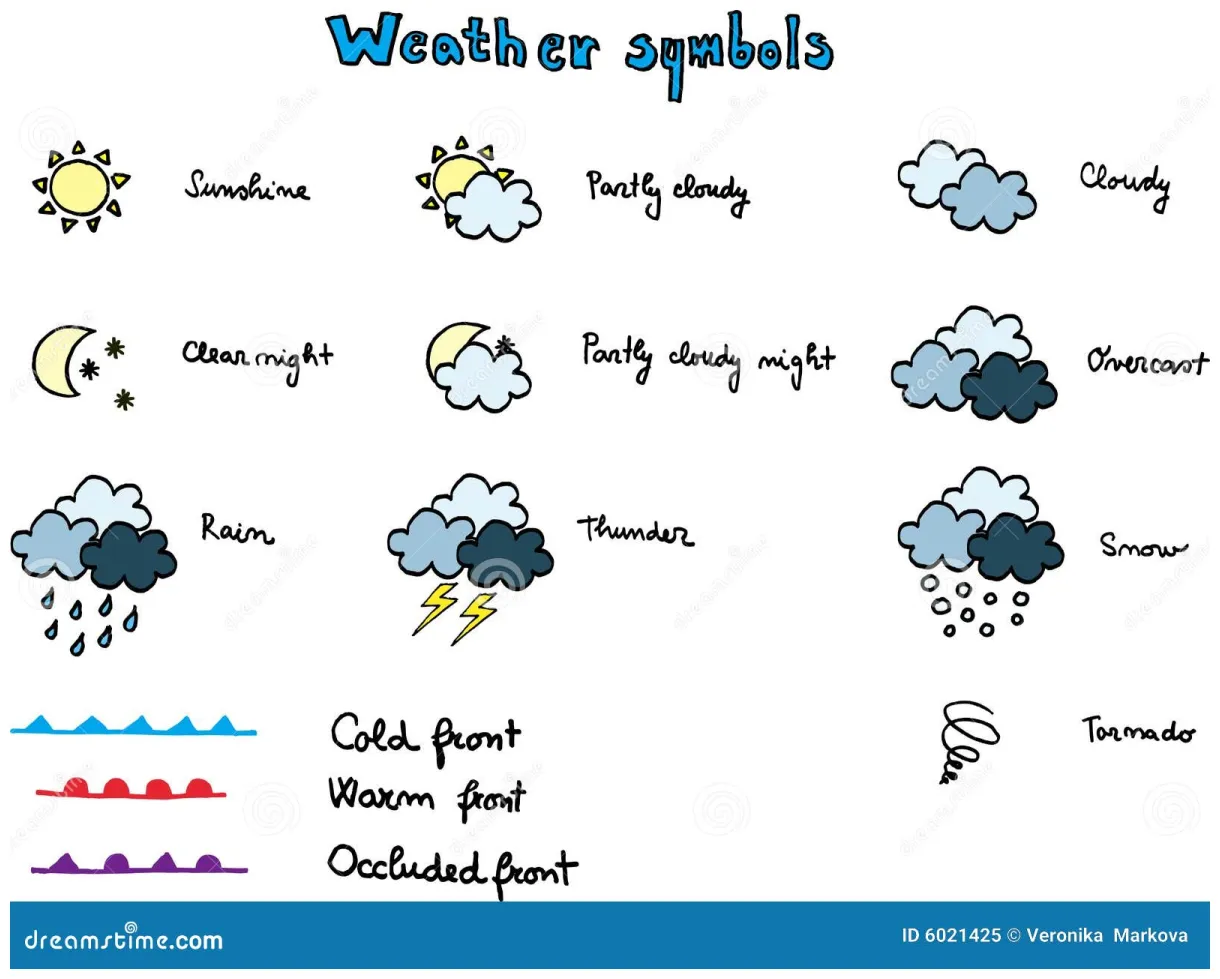 Weather symbols
Sunshine
Partly cloudy
Cloudy
Clear night
Partly cloudy night
Overcast
Rain
Thunder
Snow
Cold front
Tornado
Warm front
Occluded front
dreamstime.com
ID 6021425 © Veronika Markova